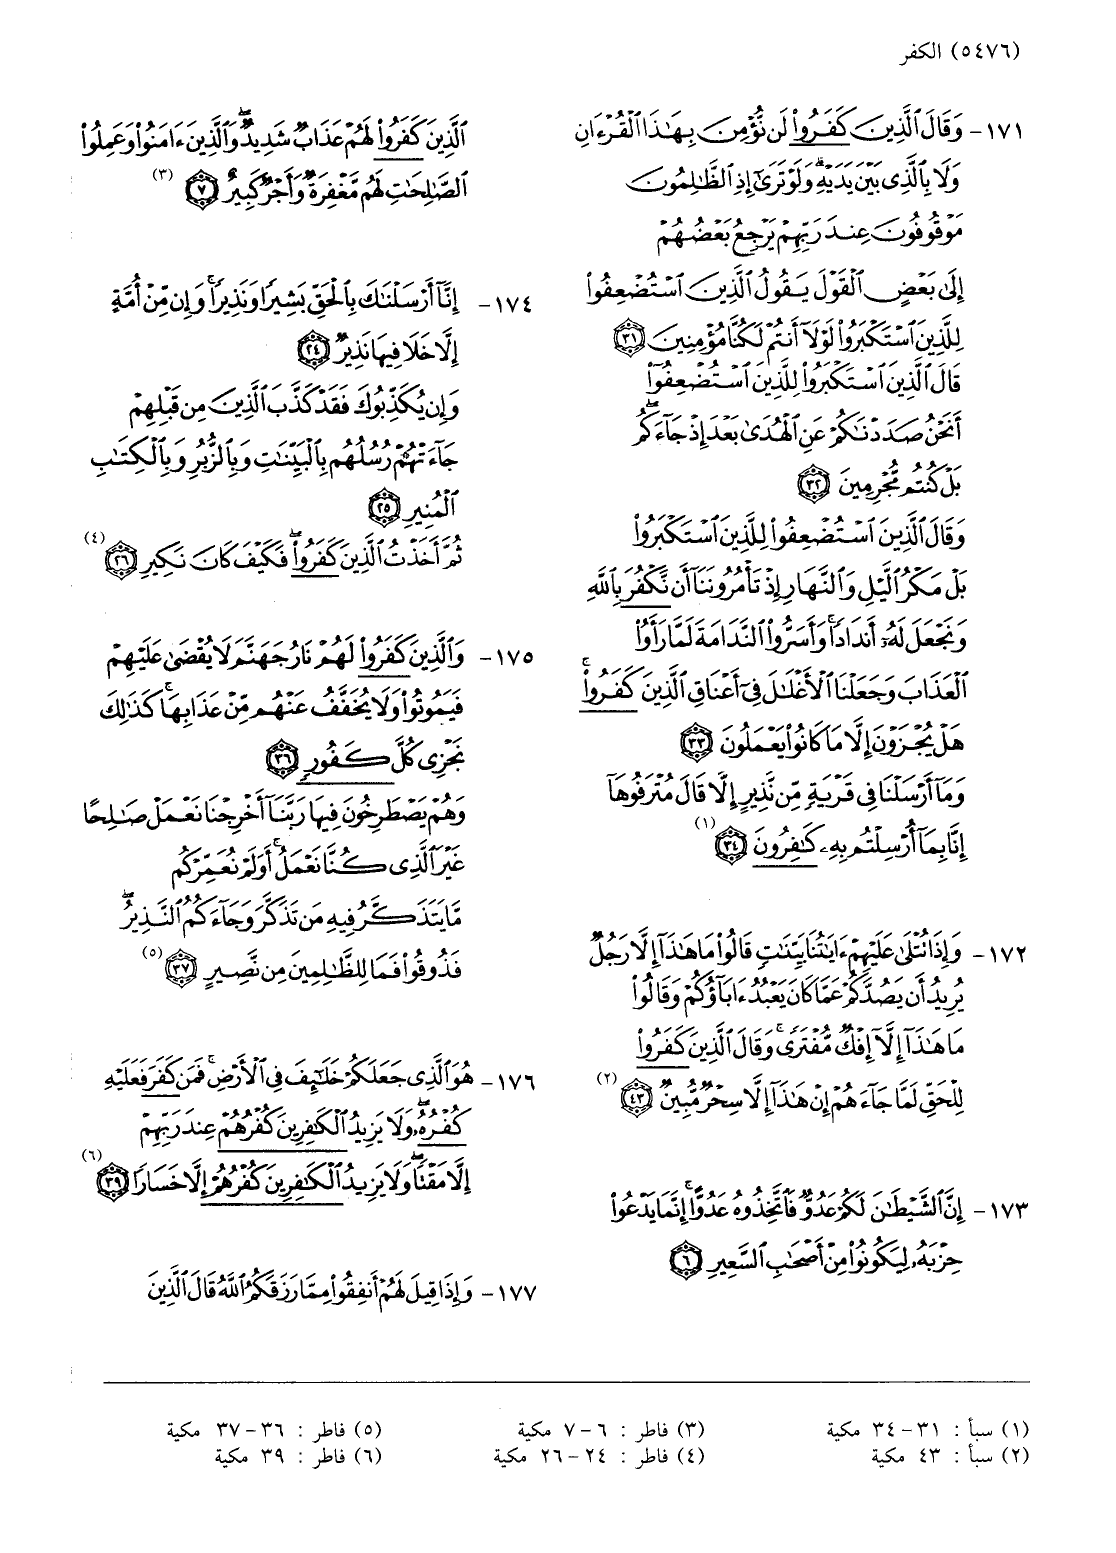 (٥٤٧٦) الكفر
١٧١- وَقَالَ ٱلَّذِينَ كَفَرُوا۟ لَن نُّؤْمِنَ بِهَـٰذَا ٱلْقُرْءَانِ
وَلَا بِٱلَّذِى بَيْنَ يَدَيْهِ ۗ وَلَوْ تَرَىٰٓ إِذِ ٱلظَّـٰلِمُونَ
مَوْقُوفُونَ عِندَ رَبِّهِمْ يَرْجِعُ بَعْضُهُمْ
إِلَىٰ بَعْضٍ ٱلْقَوْلَ يَقُولُ ٱلَّذِينَ ٱسْتُضْعِفُوا۟
لِلَّذِينَ ٱسْتَكْبَرُوا۟ لَوْلَآ أَنتُمْ لَكُنَّا مُؤْمِنِينَ ٣١
قَالَ ٱلَّذِينَ ٱسْتَكْبَرُوا۟ لِلَّذِينَ ٱسْتُضْعِفُوٓا۟
أَنَحْنُ صَدَدْنَـٰكُمْ عَنِ ٱلْهُدَىٰ بَعْدَ إِذْ جَآءَكُم ۖ
بَلْ كُنتُم مُّجْرِمِينَ ٣٢
وَقَالَ ٱلَّذِينَ ٱسْتُضْعِفُوا۟ لِلَّذِينَ ٱسْتَكْبَرُوا۟
بَلْ مَكْرُ ٱلَّيْلِ وَٱلنَّهَارِ إِذْ تَأْمُرُونَنَآ أَن نَّكْفُرَ بِٱللَّهِ
وَنَجْعَلَ لَهُۥٓ أَندَادًا ۚ وَأَسَرُّوا۟ ٱلنَّدَامَةَ لَمَّا رَأَوُا۟
ٱلْعَذَابَ وَجَعَلْنَا ٱلْأَغْلَـٰلَ فِىٓ أَعْنَاقِ ٱلَّذِينَ كَفَرُوا۟ ۚ
هَلْ يُجْزَوْنَ إِلَّا مَا كَانُوا۟ يَعْمَلُونَ ٣٣
وَمَآ أَرْسَلْنَا فِى قَرْيَةٍ مِّن نَّذِيرٍ إِلَّا قَالَ مُتْرَفُوهَآ
إِنَّا بِمَآ أُرْسِلْتُم بِهِۦ كَـٰفِرُونَ ٣٤ (١)
١٧٢- وَإِذَا تُتْلَىٰ عَلَيْهِمْ ءَايَـٰتُنَا بَيِّنَـٰتٍ قَالُوا۟ مَا هَـٰذَآ إِلَّا رَجُلٌ
يُرِيدُ أَن يَصُدَّكُمْ عَمَّا كَانَ يَعْبُدُ ءَابَآؤُكُمْ وَقَالُوا۟
مَا هَـٰذَآ إِلَّآ إِفْكٌ مُّفْتَرًى ۚ وَقَالَ ٱلَّذِينَ كَفَرُوا۟
لِلْحَقِّ لَمَّا جَآءَهُمْ إِنْ هَـٰذَآ إِلَّا سِحْرٌ مُّبِينٌ ٤٣ (٢)
١٧٣- إِنَّ ٱلشَّيْطَـٰنَ لَكُمْ عَدُوٌّ فَٱتَّخِذُوهُ عَدُوًّا ۚ إِنَّمَا يَدْعُوا۟
حِزْبَهُۥ لِيَكُونُوا۟ مِنْ أَصْحَـٰبِ ٱلسَّعِيرِ ٦
ٱلَّذِينَ كَفَرُوا۟ لَهُمْ عَذَابٌ شَدِيدٌ ۖ وَٱلَّذِينَ ءَامَنُوا۟ وَعَمِلُوا۟
ٱلصَّـٰلِحَـٰتِ لَهُم مَّغْفِرَةٌ وَأَجْرٌ كَبِيرٌ ٧ (٣)
١٧٤- إِنَّآ أَرْسَلْنَـٰكَ بِٱلْحَقِّ بَشِيرًا وَنَذِيرًا ۚ وَإِن مِّنْ أُمَّةٍ
إِلَّا خَلَا فِيهَا نَذِيرٌ ٢٤
وَإِن يُكَذِّبُوكَ فَقَدْ كَذَّبَ ٱلَّذِينَ مِن قَبْلِهِمْ
جَآءَتْهُمْ رُسُلُهُم بِٱلْبَيِّنَـٰتِ وَبِٱلزُّبُرِ وَبِٱلْكِتَـٰبِ
ٱلْمُنِيرِ ٢٥
ثُمَّ أَخَذْتُ ٱلَّذِينَ كَفَرُوا۟ ۖ فَكَيْفَ كَانَ نَكِيرِ ٢٦ (٤)
١٧٥- وَٱلَّذِينَ كَفَرُوا۟ لَهُمْ نَارُ جَهَنَّمَ لَا يُقْضَىٰ عَلَيْهِمْ
فَيَمُوتُوا۟ وَلَا يُخَفَّفُ عَنْهُم مِّنْ عَذَابِهَا ۚ كَذَٰلِكَ
نَجْزِى كُلَّ كَفُورٍ ٣٦
وَهُمْ يَصْطَرِخُونَ فِيهَا رَبَّنَآ أَخْرِجْنَا نَعْمَلْ صَـٰلِحًا
غَيْرَ ٱلَّذِى كُنَّا نَعْمَلُ ۚ أَوَلَمْ نُعَمِّرْكُم
مَّا يَتَذَكَّرُ فِيهِ مَن تَذَكَّرَ وَجَآءَكُمُ ٱلنَّذِيرُ ۖ
فَذُوقُوا۟ فَمَا لِلظَّـٰلِمِينَ مِن نَّصِيرٍ ٣٧ (٥)
١٧٦- هُوَ ٱلَّذِى جَعَلَكُمْ خَلَـٰٓئِفَ فِى ٱلْأَرْضِ ۚ فَمَن كَفَرَ فَعَلَيْهِ
كُفْرُهُۥ ۖ وَلَا يَزِيدُ ٱلْكَـٰفِرِينَ كُفْرُهُمْ عِندَ رَبِّهِمْ
إِلَّا مَقْتًا ۖ وَلَا يَزِيدُ ٱلْكَـٰفِرِينَ كُفْرُهُمْ إِلَّا خَسَارًا ٣٩ (٦)
١٧٧- وَإِذَا قِيلَ لَهُمْ أَنفِقُوا۟ مِمَّا رَزَقَكُمُ ٱللَّهُ قَالَ ٱلَّذِينَ
(١) سبأ : ٣١-٣٤ مكية
(٢) سبأ : ٤٣ مكية
(٣) فاطر : ٦-٧ مكية
(٤) فاطر : ٢٤-٢٦ مكية
(٥) فاطر : ٣٦-٣٧ مكية
(٦) فاطر : ٣٩ مكية